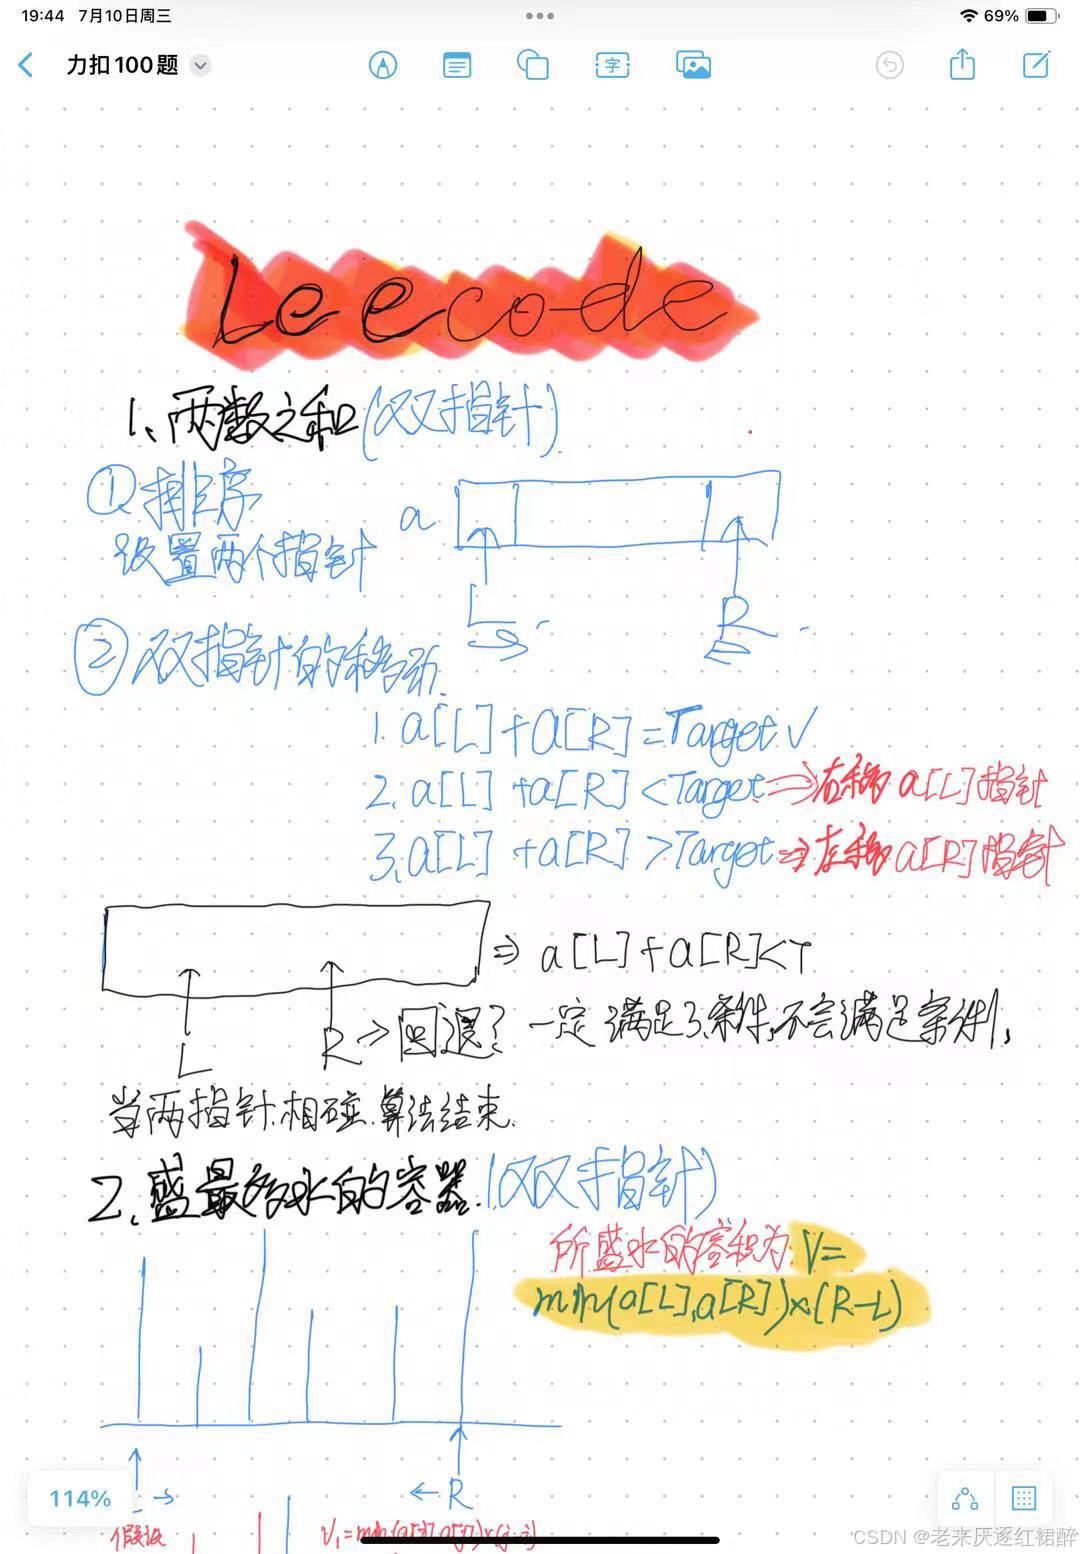 19:44 7月10日周三 69%
力扣100题
字
Leecode
1、两数之和(双指针)
①排序
设置两个指针
a
L R
②双指针的移动
1. a[L]+a[R]=Target√
2. a[L]+a[R]<Target⇒右移a[L]指针
3. a[L]+a[R]>Target⇒左移a[R]指针
⇒ a[L]+a[R]<T
L R⇒回退? 一定满足3条件,不会满足条件1,
当两指针相碰.算法结束.
2、盛最多水的容器.(双指针)
所盛水的容积为:V=
min(a[L],a[R])×(R-L)
→ ←R
114%
假设
CSDN @老来厌逐红裙醉